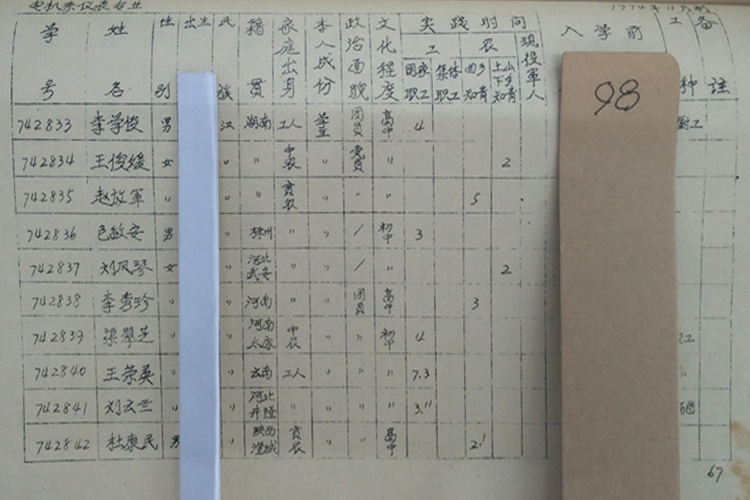 电机系仪表专业
学号 姓名 性别 出生 民族 籍贯 家庭出身 本人成份 政治面貌 文化程度 实践时间 入学前 工种 备注
工 农 现役軍人
国家职工 集体职工 回乡知青 上山下乡知青
98
742833 李学俊 男 汉 湖南 工人 学生 团员 高中 4 工
742834 王俊媛 女 〃 〃 中农 〃 党员 〃 2
742835 赵放軍 〃 〃 〃 贫农 〃 〃 〃 5
742836 男 〃 〃 〃 / 初中 3
742837 刘凤琴 女 〃 河北武安 〃 〃 / 〃 2
742838 李秀珍 〃 〃 河南 〃 〃 团员 高中 3
742839 梁翠芝 〃 〃 河南太康 中农 〃 〃 初中 4 工
742840 王荣英 〃 〃 云南 工人 〃 〃 〃 7.3
742841 刘云兰 〃 〃 河北井陉 〃 〃 〃 〃 3.11
742842 杜康民 男 〃 陕西澄城 贫农 〃 〃 高中 2.1
67